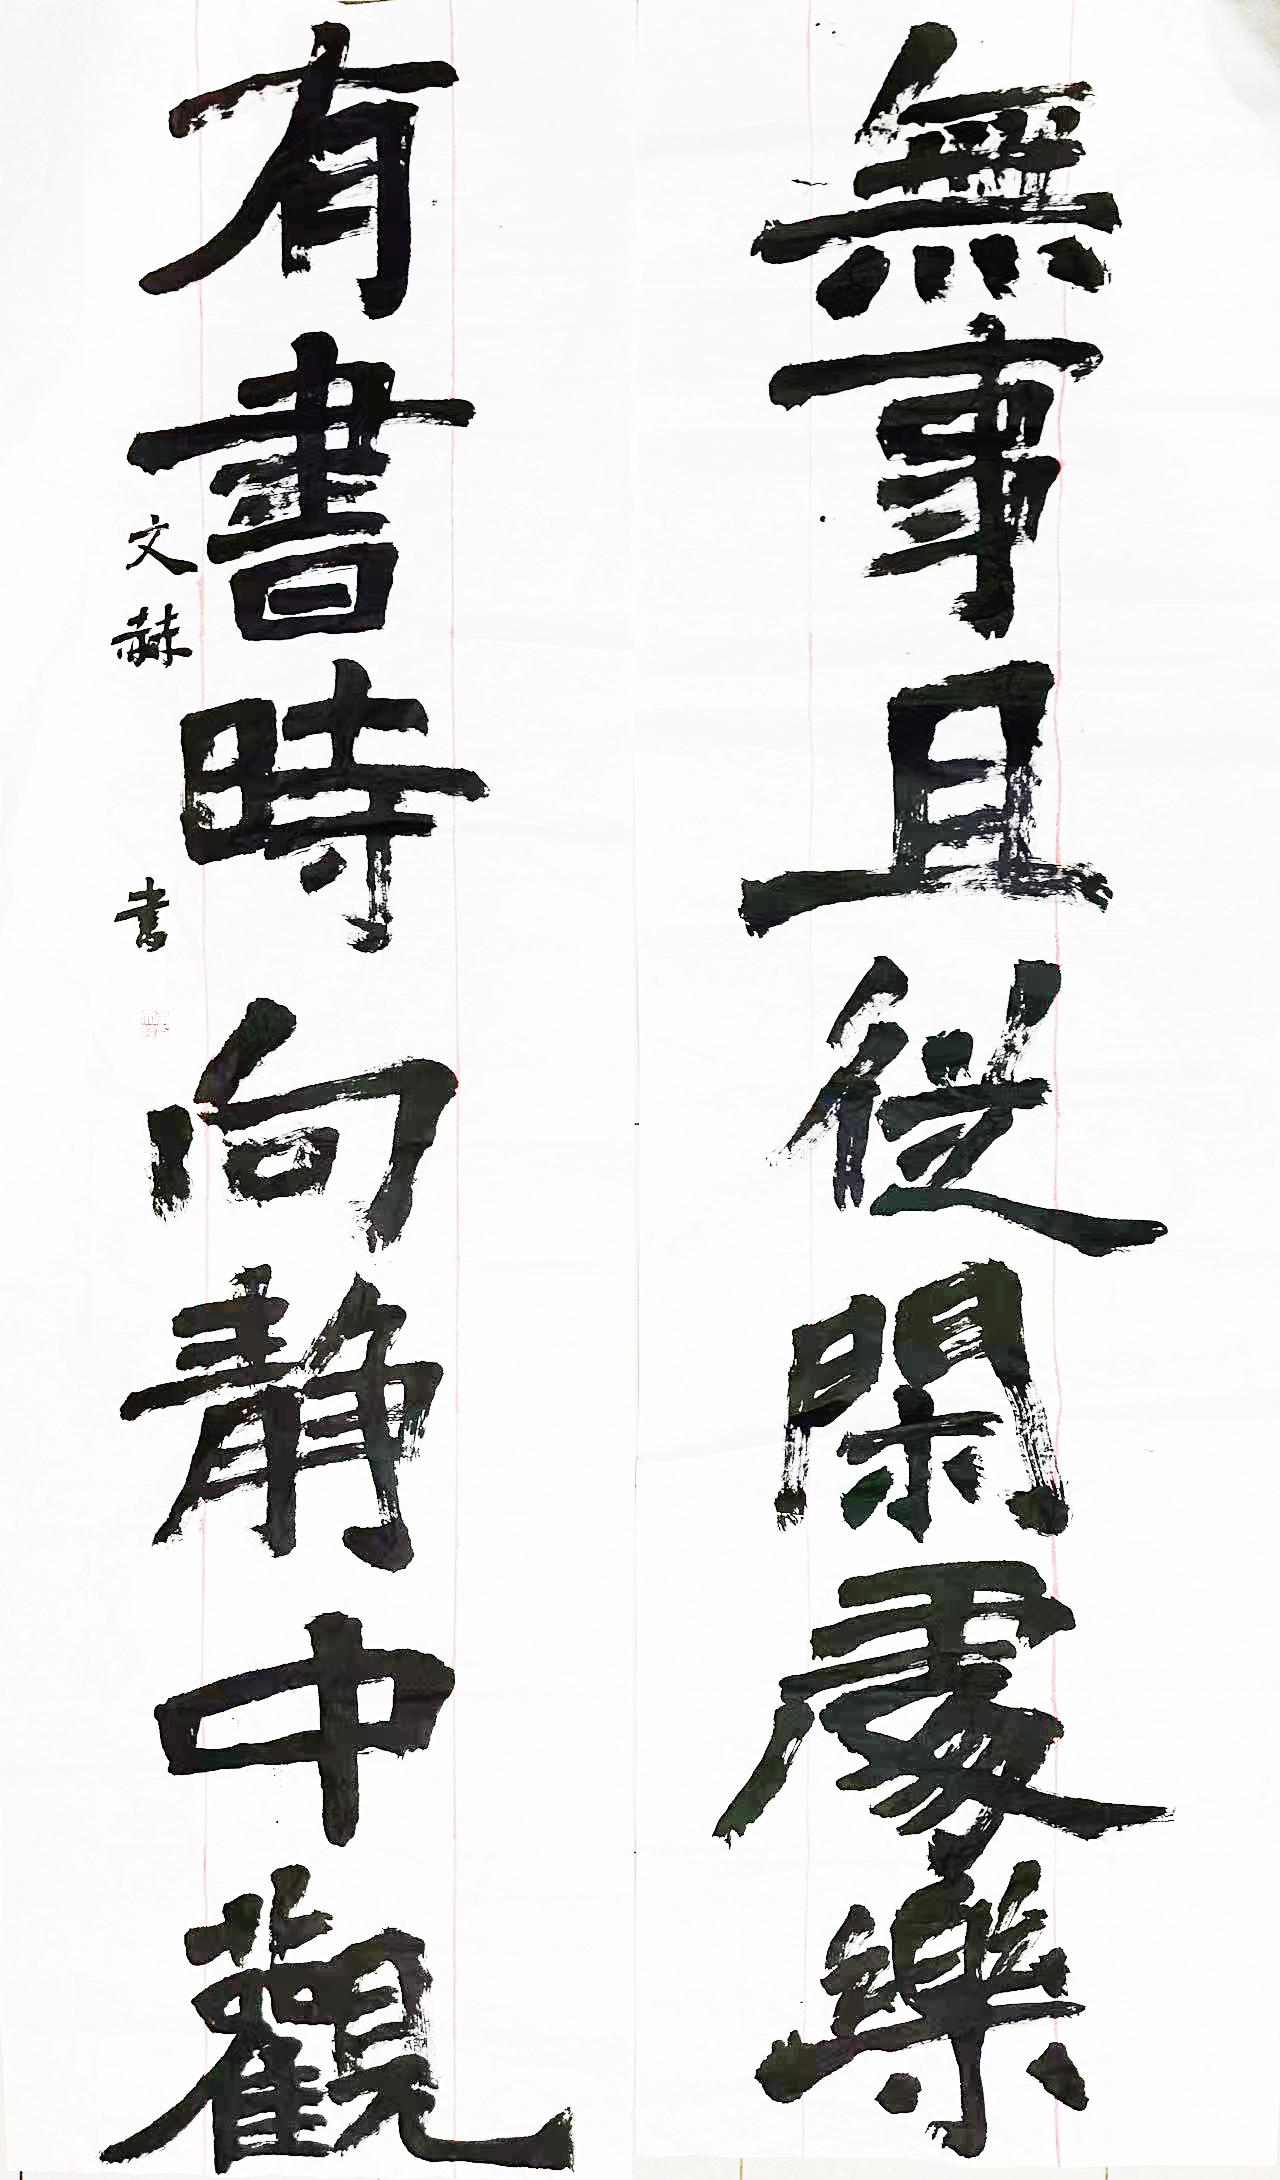 無事且從閑處樂
有書時向靜中觀
文赫書